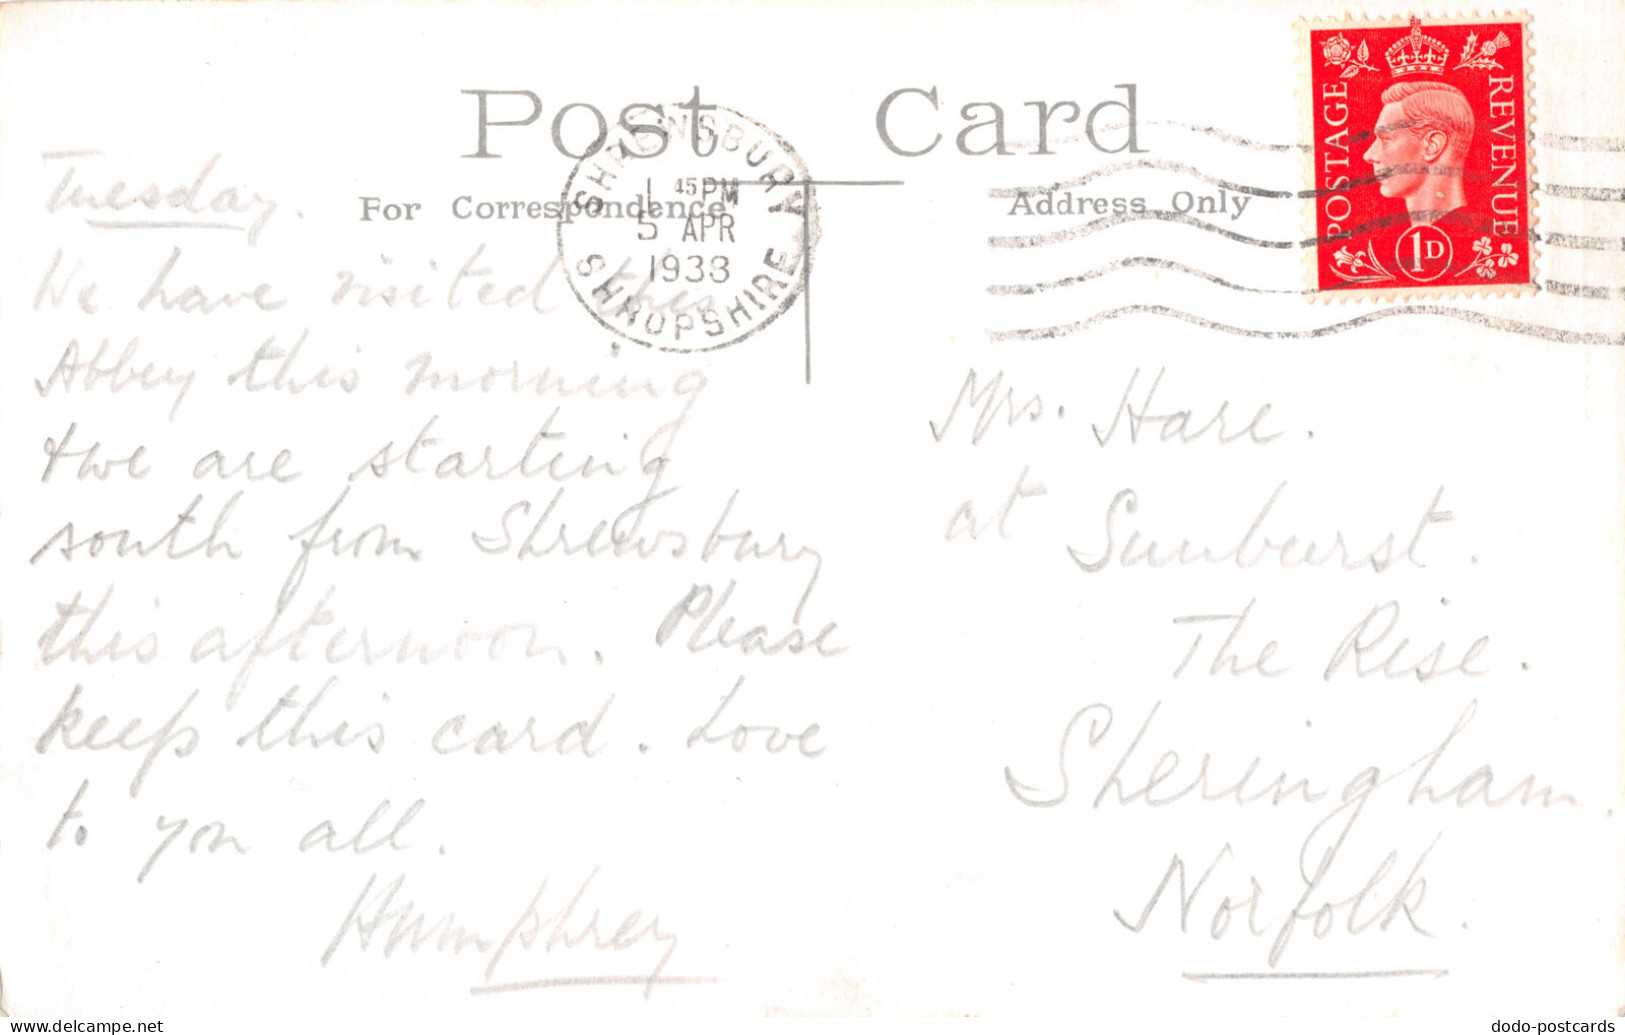 Post Card
For Correspondence
Address Only
SHREWSBURY
1 45 PM
5 APR
1938
SHROPSHIRE
POSTAGE
REVENUE
1D
Tuesday.
We have visited this
Abbey this morning
& we are starting
south from Shrewsbury
this afternoon. Please
keep this card. Love
to you all.
Humphrey
Mrs. Hare.
at Sunburst.
The Rise.
Sheringham.
Norfolk.
www.delcampe.net
dodo-postcards